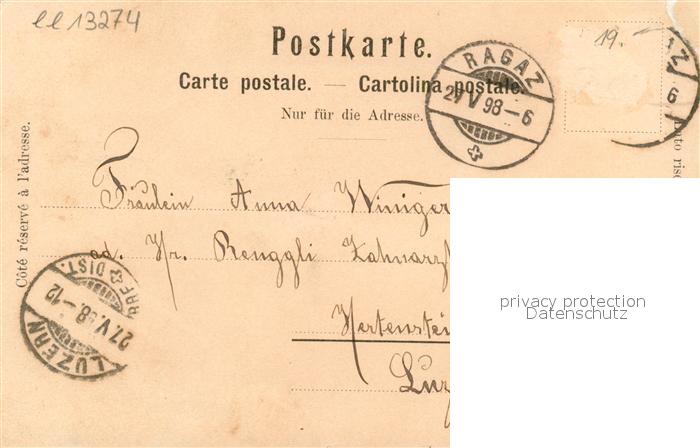 ee 13274
19.-
Postkarte.
Carte postale. — Cartolina postale.
Nur für die Adresse.
RAGAZ
27 V 98 - 6
Z
6
Côté réservé à l'adresse.
Fräulein Anna Winiger
ad. Hr. Renggli Zahnarz
Hertenstei
Luz
LUZERN
BRF DIST.
27. V. 98.-12
privacy protection
Datenschutz